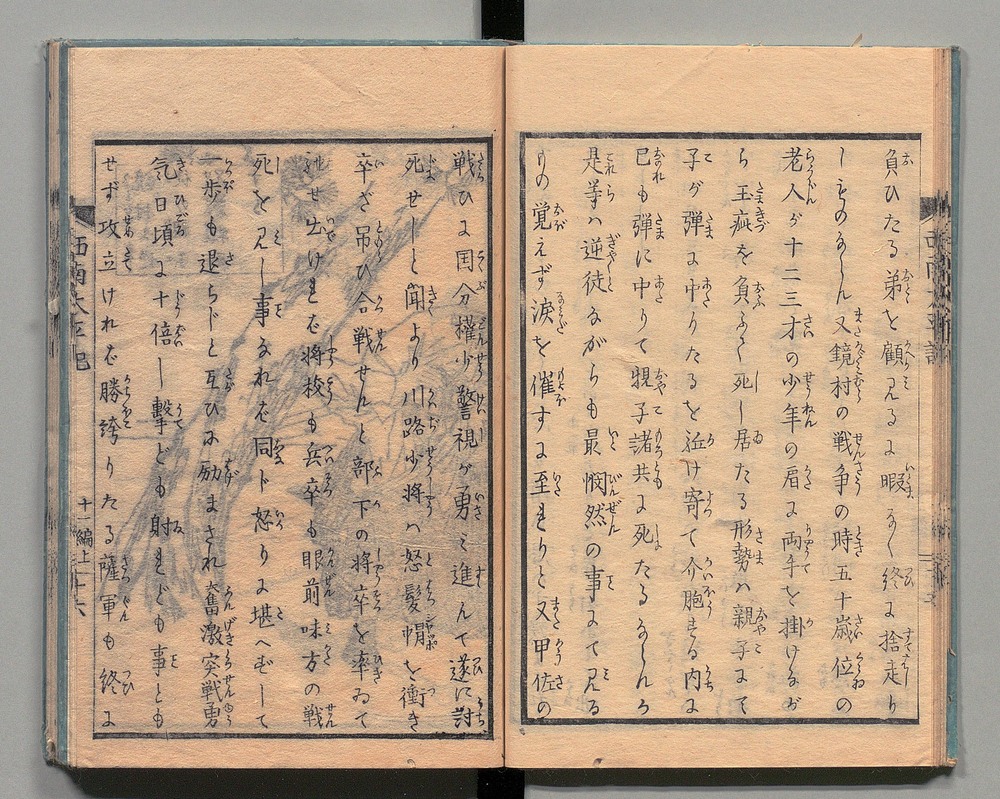 負ひたる弟を顧みるに暇なく終に捨走り
しものならん又鏡村の戦争の時五十歳位の
老人が十二三才の少年の眉に両手を掛けなが
ら玉疵を負ふて死し居たる形勢ハ親子にて
子が弾に中りたるを駈け寄て介胞する内に
已も弾に中りて親子諸共に死たるならんか
是等ハ逆徒ながらも最憫然の事にて見る
もの覚えず涙を催すに至れりと又甲佐の
戦ひに国分権少警視が勇ミ進んで遂に討
死せしと聞より川路少将ハ怒髪帽を衝き
卒ざ吊ひ合戦せんと部下の将卒を率ゐて
馳せ出けれバ将校も兵卒も眼前味方の戦
死を見し事なれバ同ド怒りに堪へずして
一歩も退ちじと互ひに励まされ奮激突戦勇
気日頃に十倍し撃ども射れども事とも
せず攻立けれバ勝誇りたる薩軍も終に
西南太平記
十一編上
十六